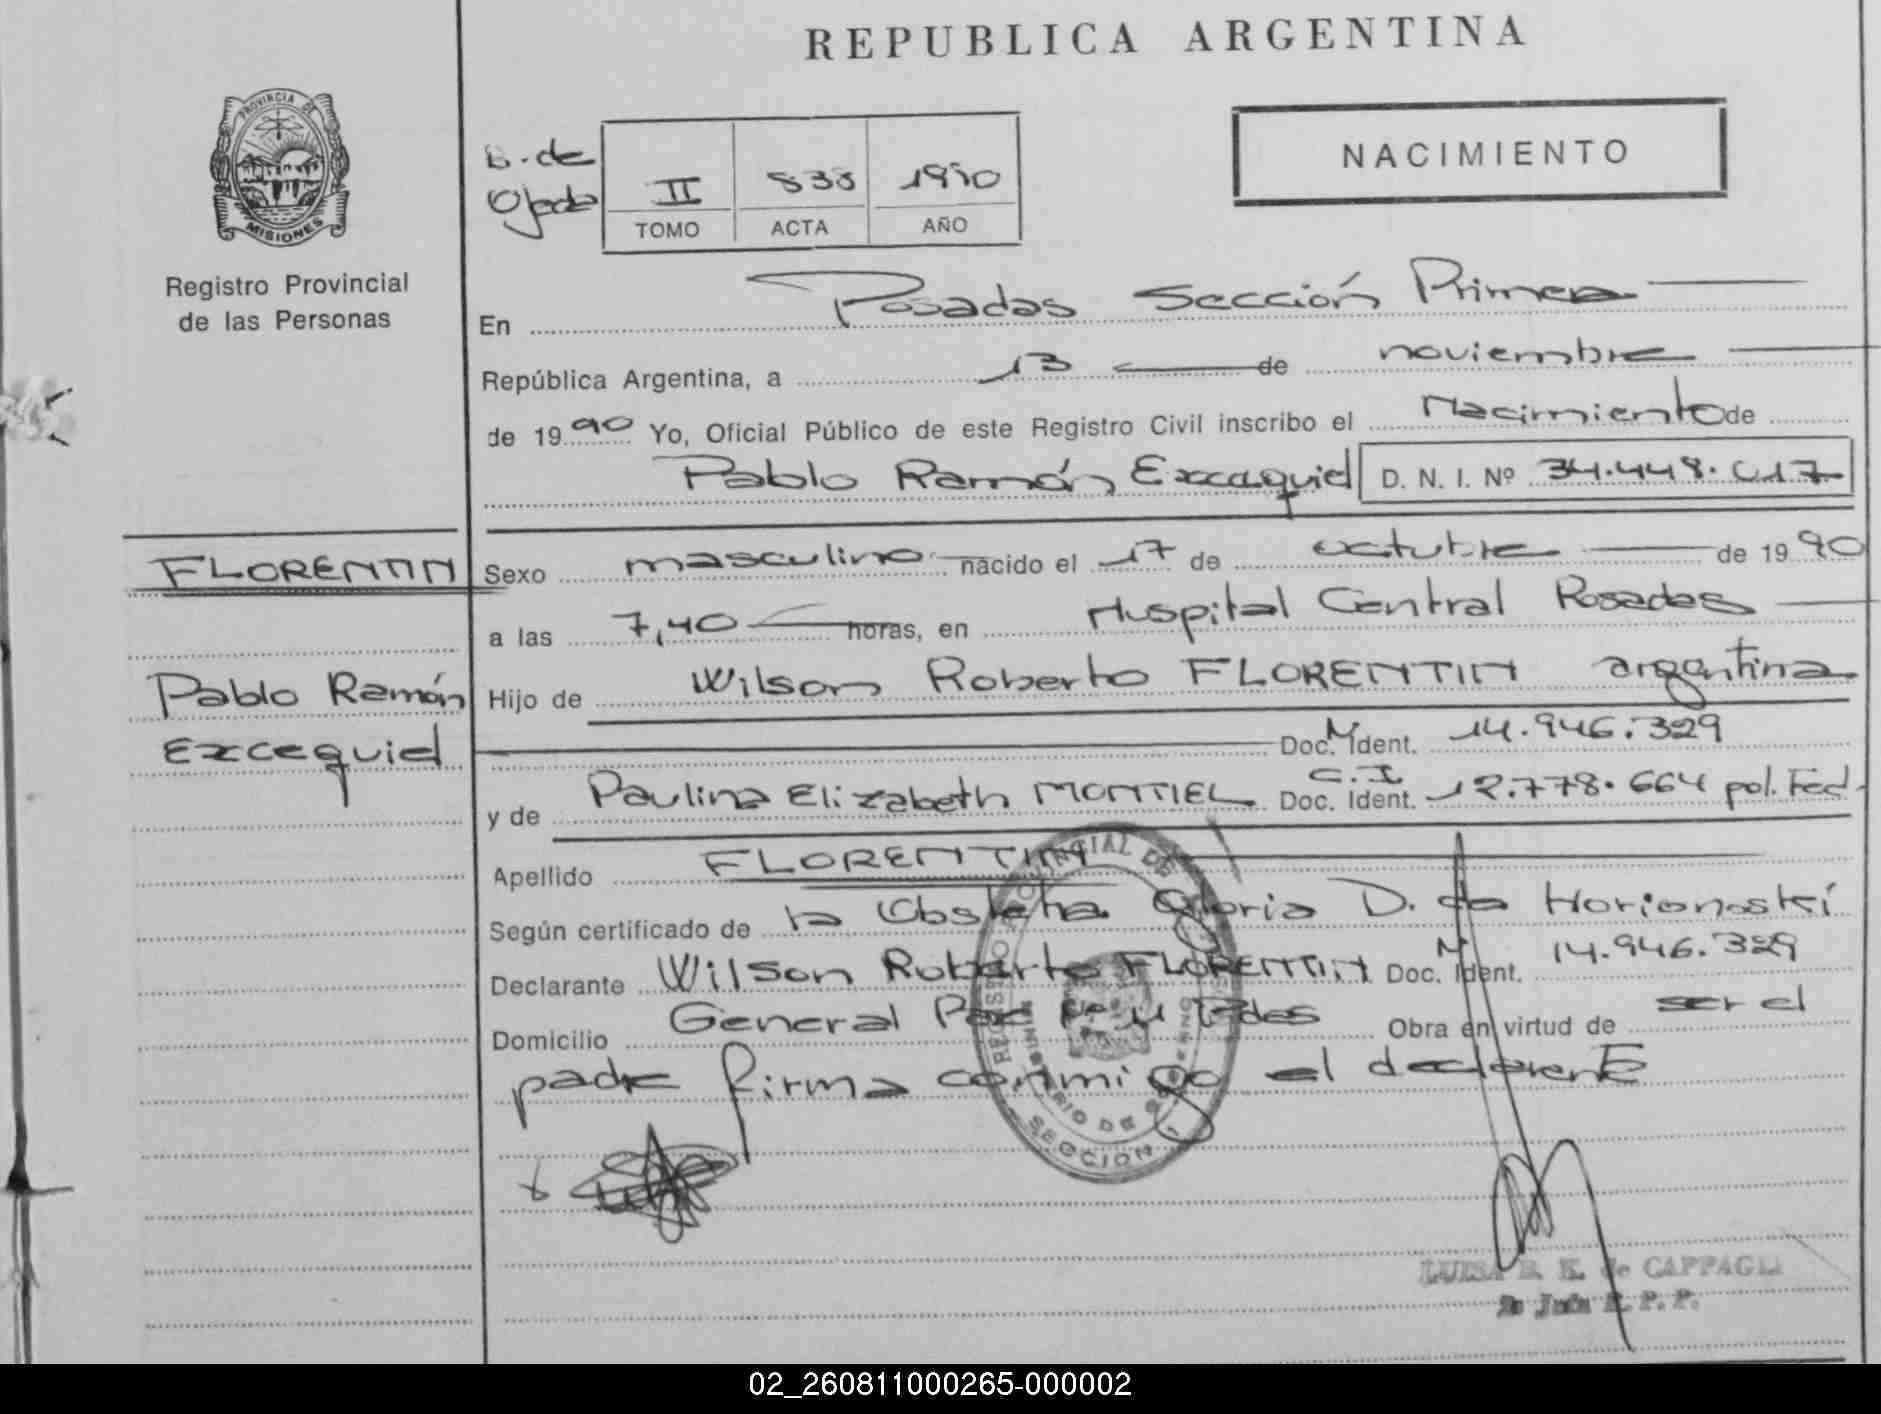 REPUBLICA ARGENTINA
NACIMIENTO
PROVINCIA DE
MISIONES
Registro Provincial
de las Personas
B. de
Ojeda
II 838 1990
TOMO ACTA AÑO
En Posadas Sección Primera
República Argentina, a 13 de noviembre
de 1990 Yo, Oficial Público de este Registro Civil inscribo el Nacimiento de
Pablo Ramón Excequiel D. N. I. Nº 34.448.017
FLORENTIN
Sexo masculino nacido el 17 de octubre de 1990
a las 7,40 horas, en Hospital Central Posadas
Pablo Ramón
Excequiel
Hijo de Wilson Roberto FLORENTIN argentina
Doc. Ident. M 14.946.329
y de Paulina Elizabeth MONTIEL Doc. Ident. C.I 12.778.664 pol. Fed.
Apellido FLORENTIN
Según certificado de la Obstetra Gloria D. de Horionoski
Declarante Wilson Roberto FLORENTIN Doc. Ident. M 14.946.329
Domicilio General Paz Pdas Obra en virtud de ser el
padre firma conmigo el declarante
REGISTRO PROVINCIAL DE
MINISTERIO DE GOBIERNO
SECCION 1
LUISA B. K. de CAPPAGLI
R. P. P.
02_260811000265-000002